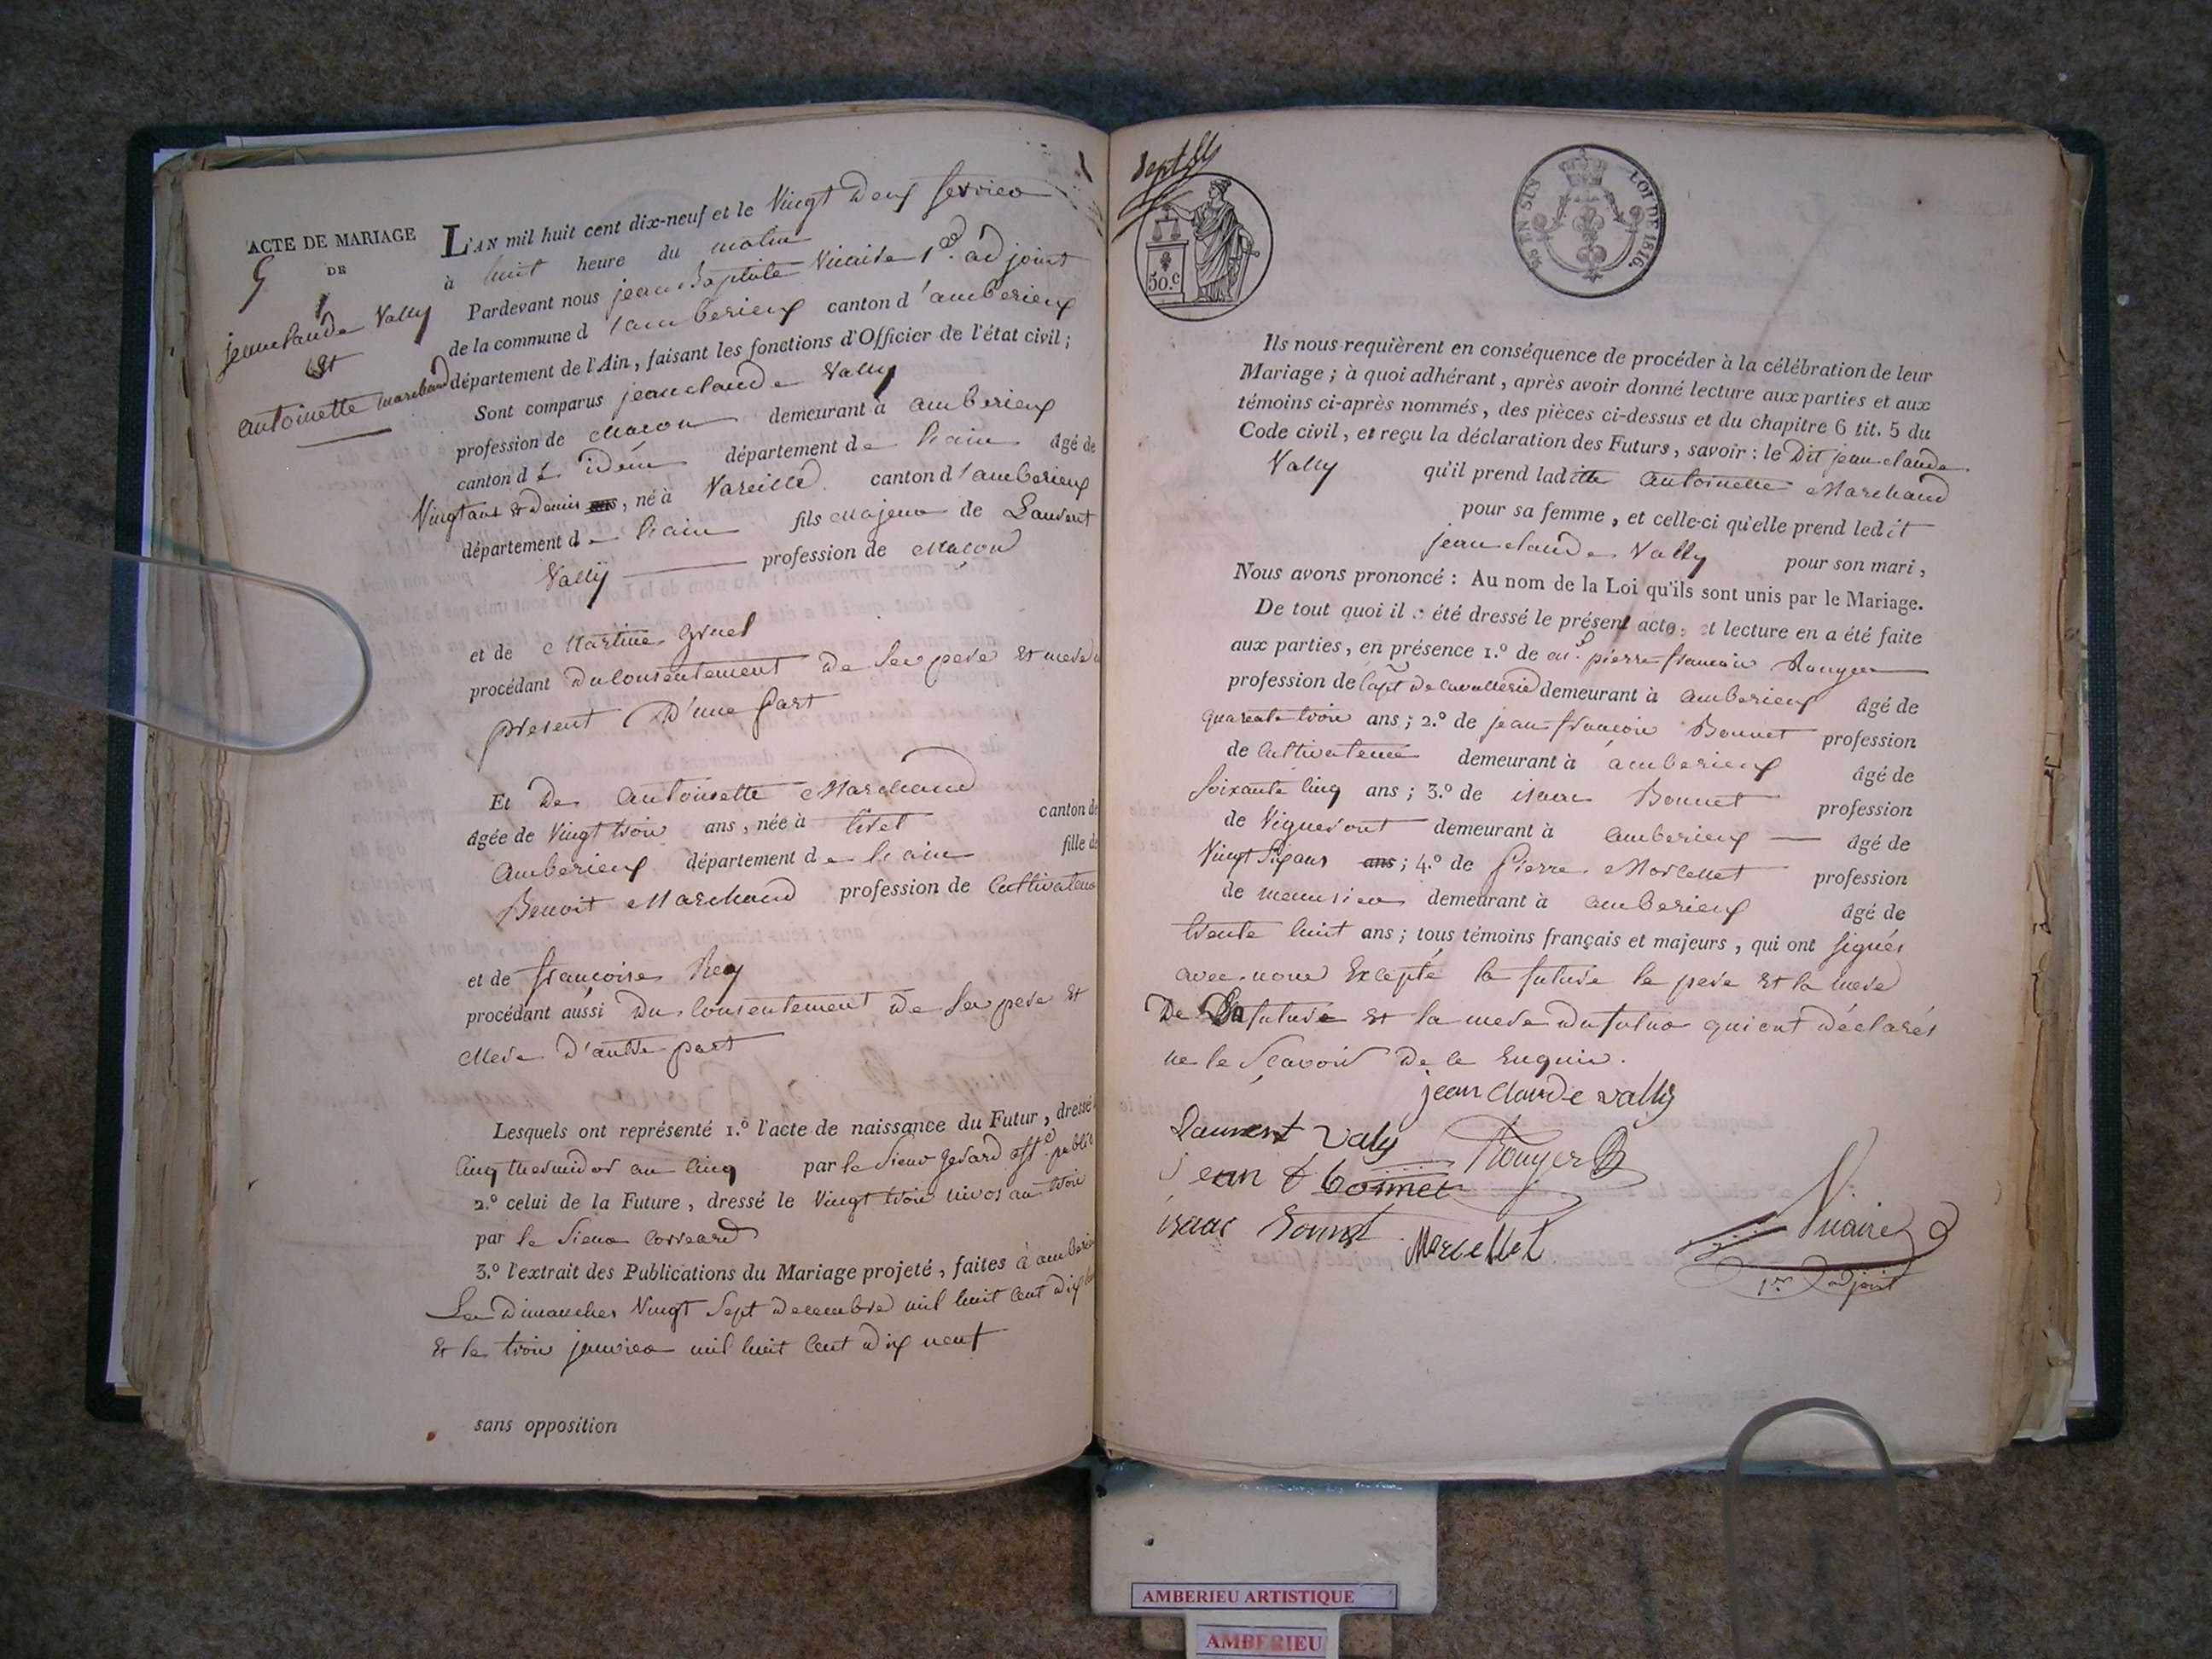 ACTE DE MARIAGE
5
DE
jean claude Vally
Et
antoinette marchand
L'AN mil huit cent dix-neuf et le Vingt Deux fevrier
à huit heure du matin
Pardevant nous jean Baptiste Vicaire 1er adjoint
de la commune d'amberieux canton d'amberieux
département de l'Ain, faisant les fonctions d'Officier de l'état civil;
Sont comparus jean claude Vally
profession de Macon demeurant à amberieux
canton d idem département de l'ain âgé de
Vingt ans et demis ans, né à Vareille canton d'amberieux
département de l'ain fils Majeur de Laurent
Vally profession de Macon
et de Martine Gruel
procédant du Consentement de Ses pere Et mere
present D'une part
Et De antoinette Marchand
âgée de Vingt trois ans, née à tiret canton de
Amberieux département de l'ain fille de
Benoit Marchand profession de Cultivateur
et de françoise Rey
procédant aussi Du Consentement de Ses pere Et
Mere D'autre part
Lesquels ont représenté 1.º l'acte de naissance du Futur, dressé
Cinq thermidor an Cinq par le Sieur Gerard off. public
2.º celui de la Future, dressé le Vingt trois nivos an trois
par le Sieur Correard
3.º l'extrait des Publications du Mariage projeté, faites à amberieu
Les Dimanches Vingt Sept decembre mil huit Cent dix
Et le trois janvier mil huit Cent dix neuf
sans opposition
Sept
50.C
EN SUS
LOI DE 1816.
Ils nous requièrent en conséquence de procéder à la célébration de leur
Mariage; à quoi adhérant, après avoir donné lecture aux parties et aux
témoins ci-après nommés, des pièces ci-dessus et du chapitre 6 tit. 5 du
Code civil, et reçu la déclaration des Futurs, savoir: le Dit jean claude
Vally qu'il prend ladite antoinette Marchand
pour sa femme, et celle-ci qu'elle prend ledit
jean claude Vally pour son mari,
Nous avons prononcé: Au nom de la Loi qu'ils sont unis par le Mariage.
De tout quoi il a été dressé le présent acte, et lecture en a été faite
aux parties, en présence 1.º de pierre françois Rouyer
profession de Capt de Cavallerie demeurant à amberieux âgé de
quarante trois ans; 2.º de jean françois Bonnet profession
de Cultivateur demeurant à amberieux âgé de
Soixante Cinq ans; 3.º de isaac Bonnet profession
de Vigneront demeurant à amberieux âgé de
Vingt Six ans ans; 4.º de Pierre Marcellet profession
de menusier demeurant à amberieux âgé de
trente huit ans; tous témoins français et majeurs, qui ont signés
avec nous Excepté la future le pere et la mere
De La future et la mere du futur qui ont déclarés
ne le Scavoir de ce Enquis.
jean Claude vally
Laurent Valy
Rouyer
jean f bonnet
isaac Bonnet
Marcellet
Vicaire
1er adjoint
AMBERIEU ARTISTIQUE
AMBERIEU